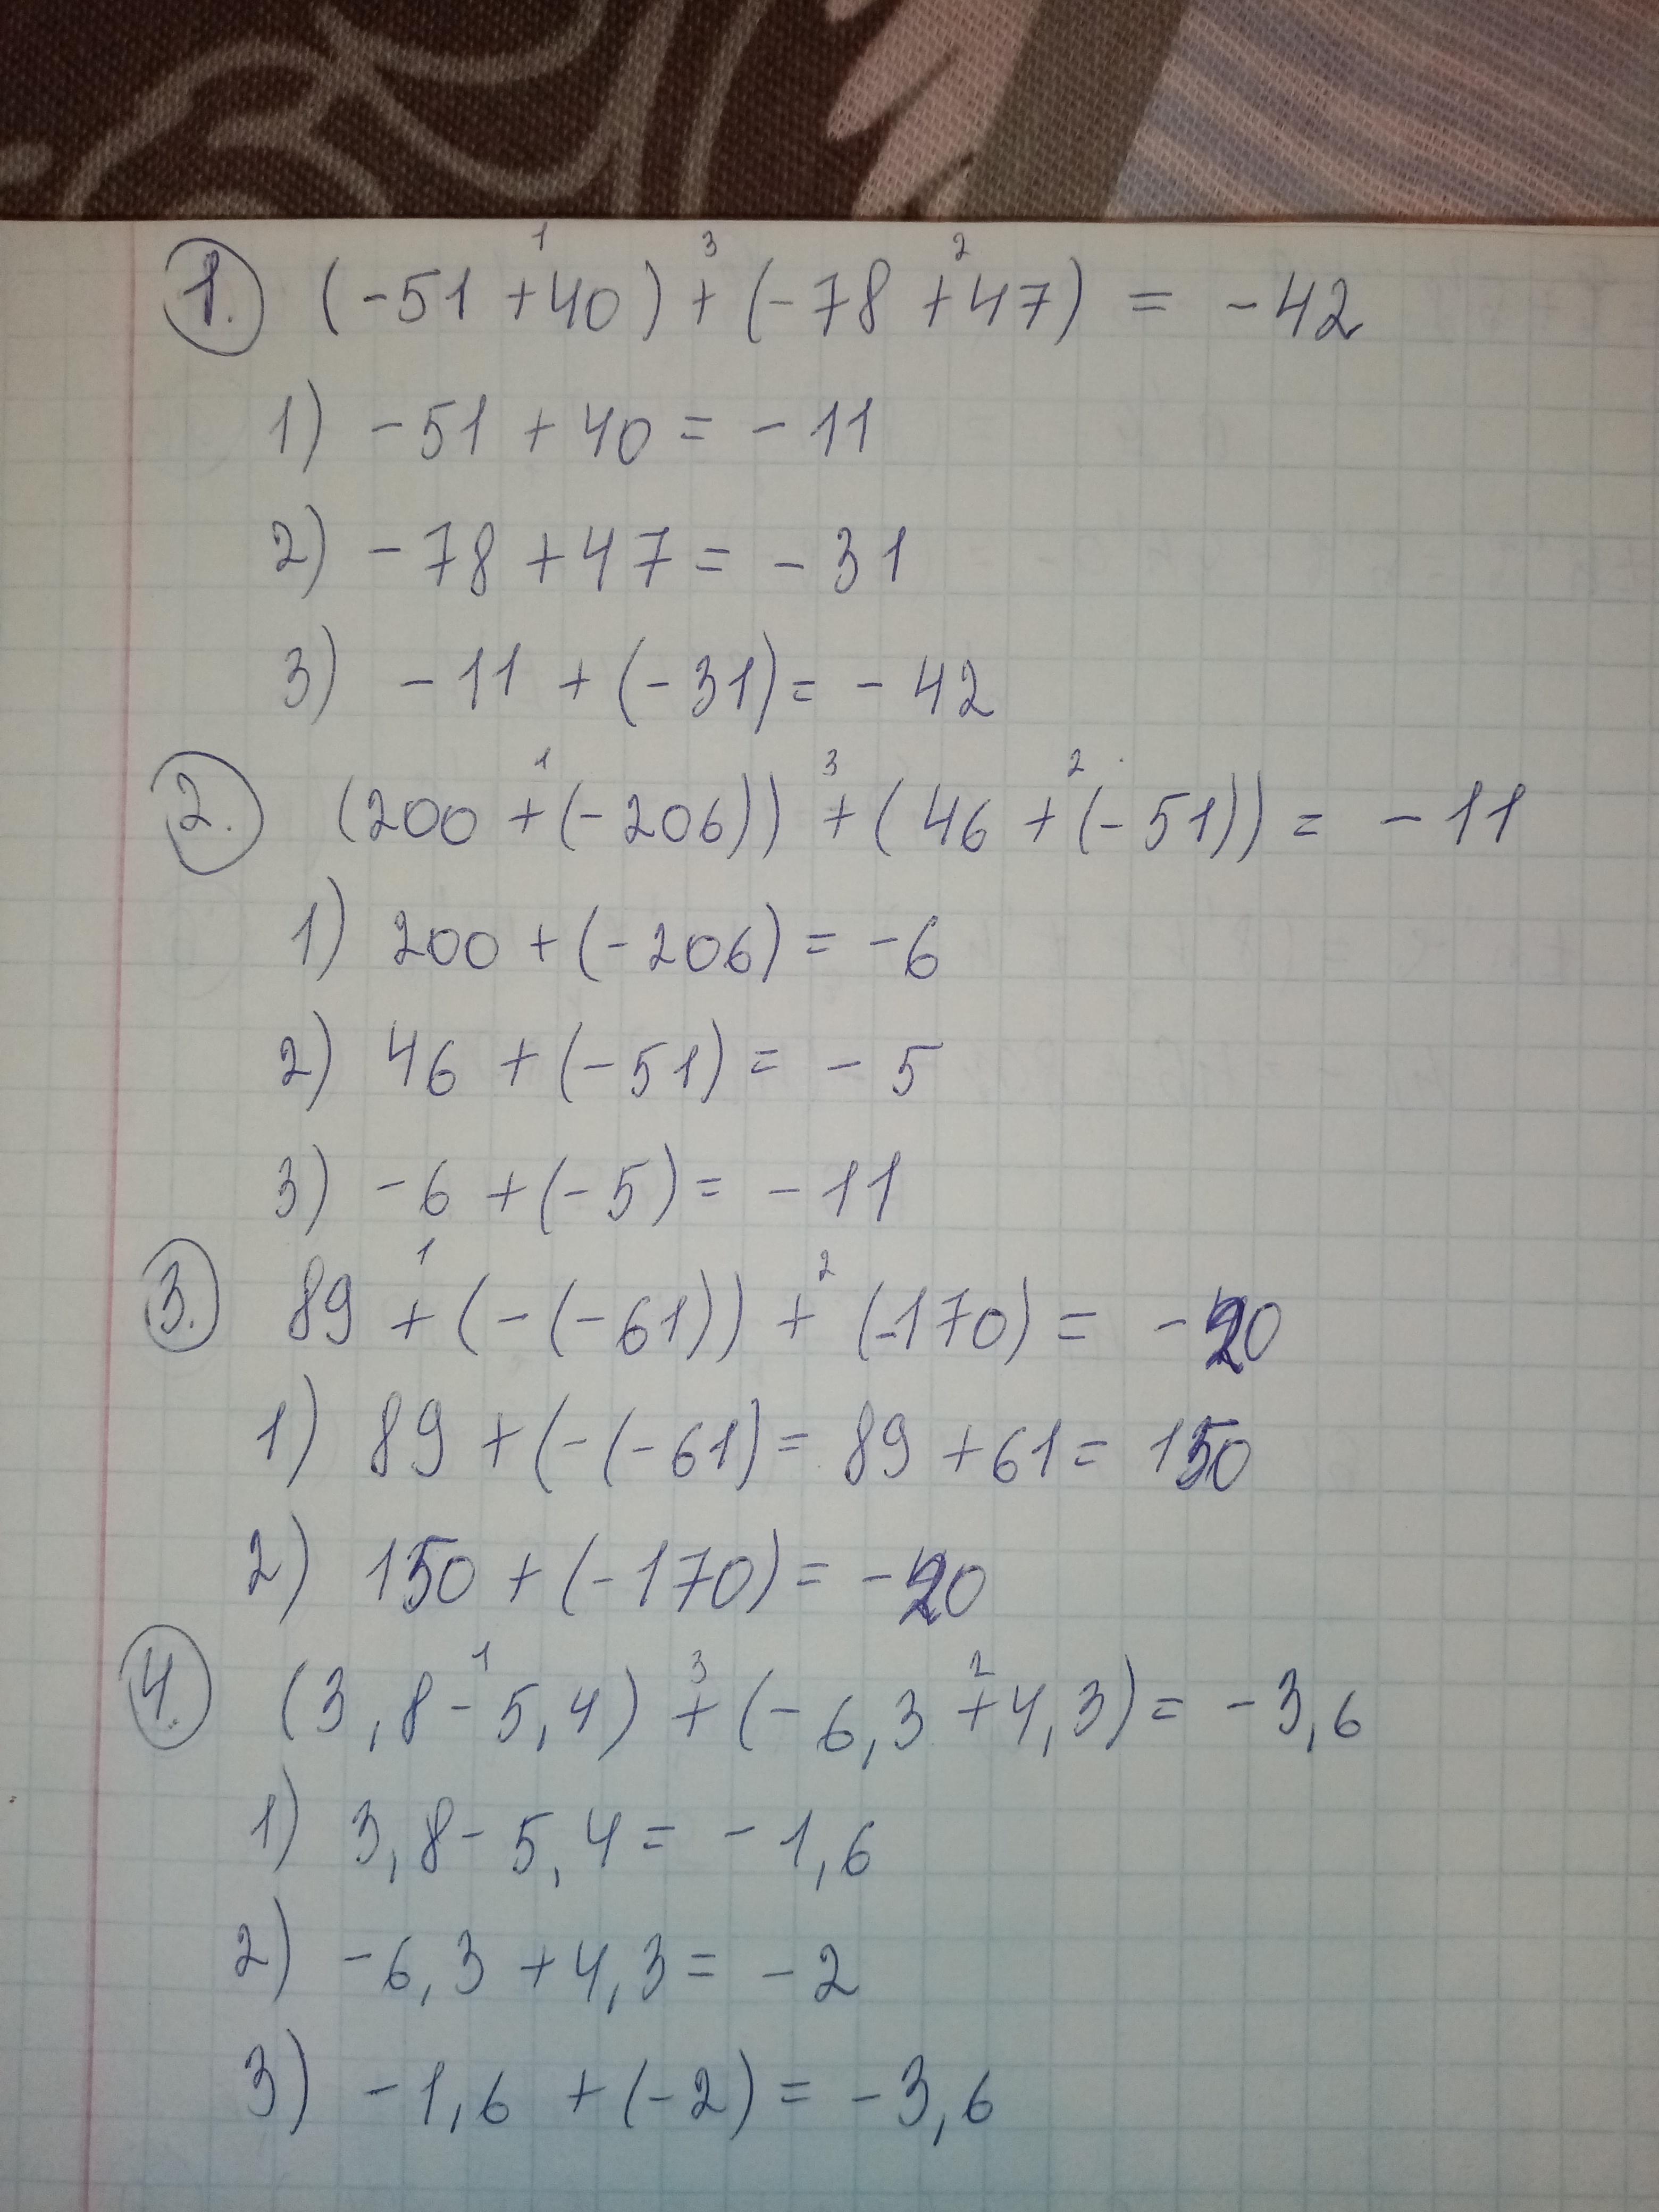 1. (-51 +¹ 40) +³ (-78 +² 47) = -42
1) -51 + 40 = -11
2) -78 + 47 = -31
3) -11 + (-31) = -42
2. (200 +¹ (-206)) +³ (46 +² (-51)) = -11
1) 200 + (-206) = -6
2) 46 + (-51) = -5
3) -6 + (-5) = -11
3. 89 +¹ (-(-61)) +² (-170) = -20
1) 89 + (-(-61) = 89 + 61 = 150
2) 150 + (-170) = -20
4. (3,8 -¹ 5,4) +³ (-6,3 +² 4,3) = -3,6
1) 3,8 - 5,4 = -1,6
2) -6,3 + 4,3 = -2
3) -1,6 + (-2) = -3,6